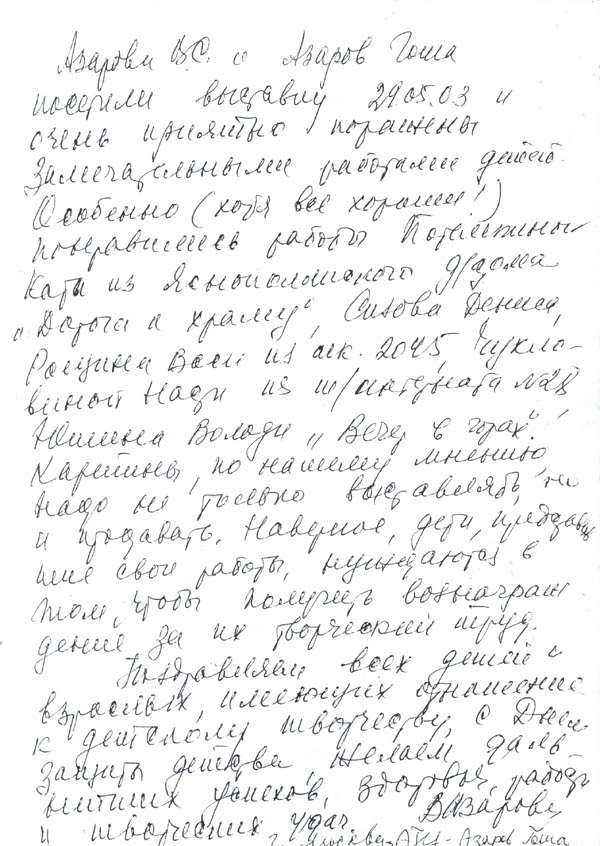 Азаровы В.С. и Азаров Гоша
посетили выставку 29.05.03 и
очень приятно поражены
замечательными работами детей.
Особенно (хотя все хороши!)
понравились работы Потёмкиной
Кати из Яснополянского д/дома
„Дорога к храму", Сизова Дениса,
Рощина Васи из шк. 2045, Чукло-
виной Нади из ш/интерната №28,
Юшина Володи „Вечер в горах".
Картины, по нашему мнению
надо не только выставлять, но
и продавать. Наверное, дети, представив
шие свои работы, нуждаются в
том, чтобы получить вознаграж
дение за их творческий труд.
Поздравляем всех детей и
взрослых, имеющих отношение
к детскому творчеству, с Днём
защиты детства желаем даль-
нейших успехов, здоровья, работы
и творческих удач. В. Азарова
г. Москва - Азаров Гоша